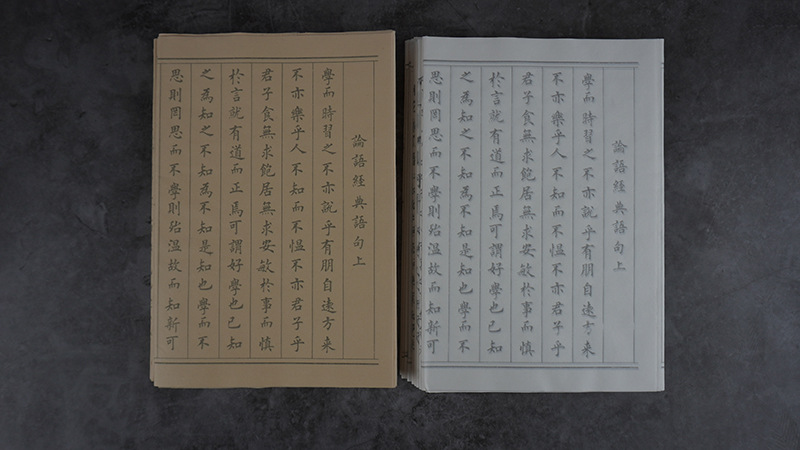 論語經典語句上
學而時習之不亦說乎有朋自遠方来
不亦樂乎人不知而不愠不亦君子乎
君子食無求飽居無求安敏於事而慎
於言就有道而正焉可謂好學也已知
之為知之不知為不知是知也學而不
思則罔思而不學則殆温故而知新可
論語經典語句上
學而時習之不亦說乎有朋自遠方来
不亦樂乎人不知而不愠不亦君子乎
君子食無求飽居無求安敏於事而慎
於言就有道而正焉可謂好學也已知
之為知之不知為不知是知也學而不
思則罔思而不學則殆温故而知新可